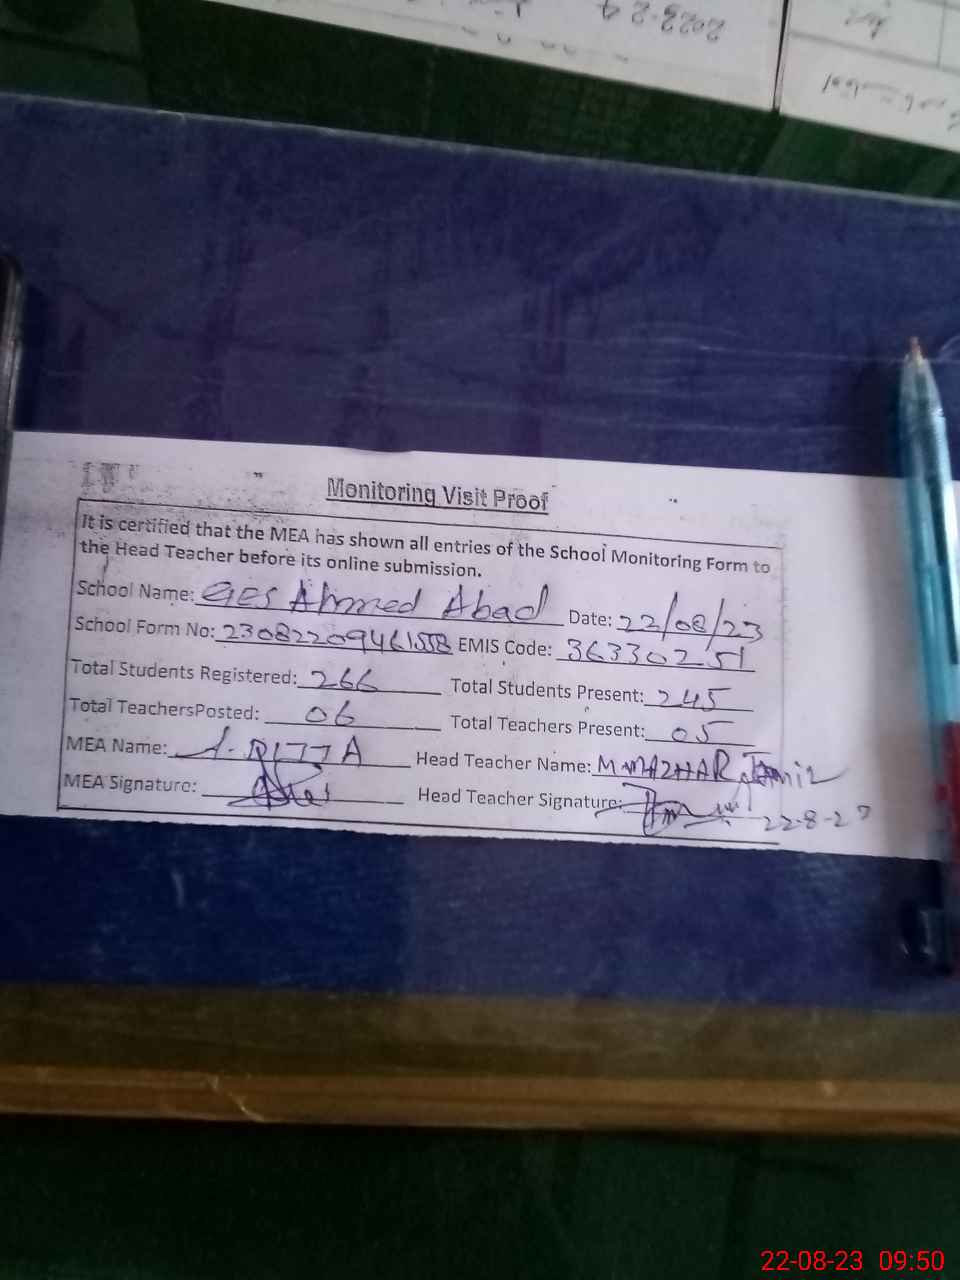 2023-24
Monitoring Visit Proof
It is certified that the MEA has shown all entries of the School Monitoring Form to
the Head Teacher before its online submission.
School Name: GES Ahmed Abad Date: 22/08/23
School Form No: 23082209461558 EMIS Code: 36330251
Total Students Registered: 266 Total Students Present: 245
Total TeachersPosted: 06 Total Teachers Present: 05
MEA Name: Head Teacher Name: M MAZHAR Jamil
MEA Signature: Head Teacher Signature: 22-8-23
22-08-23 09:50